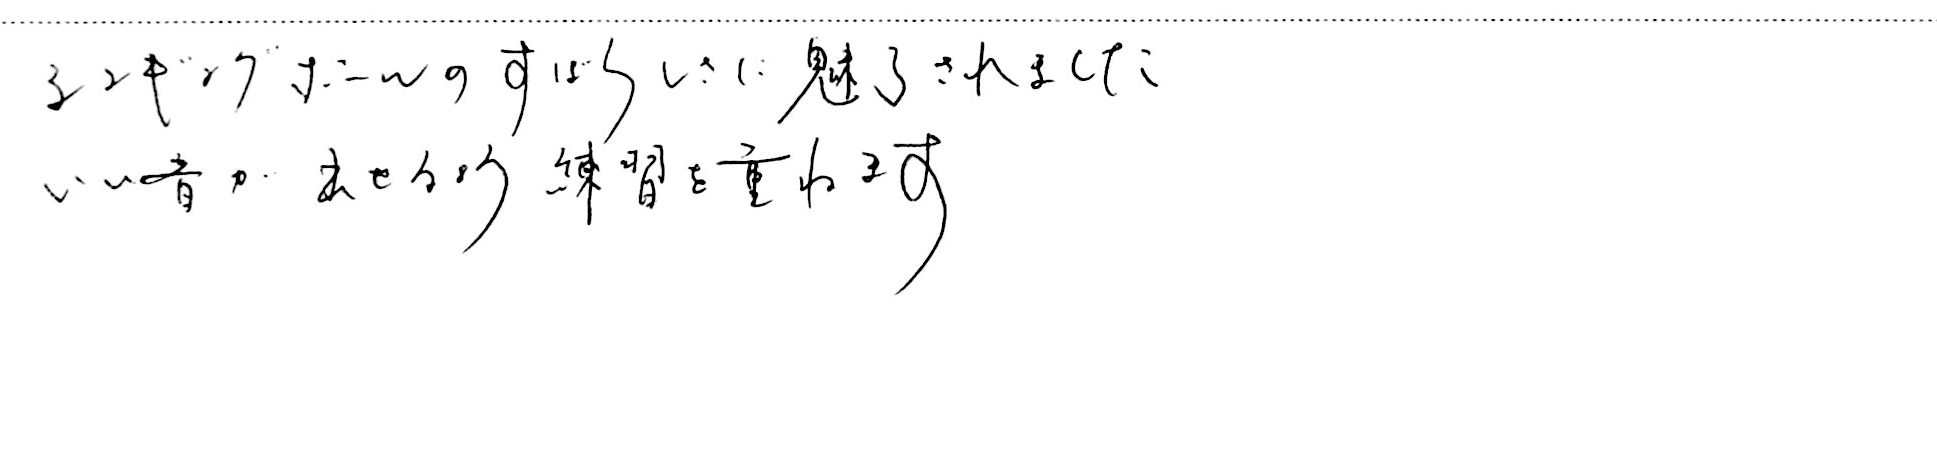 シンギングボールのすばらしさに魅了されました
いい音が出せるよう練習を重ねます